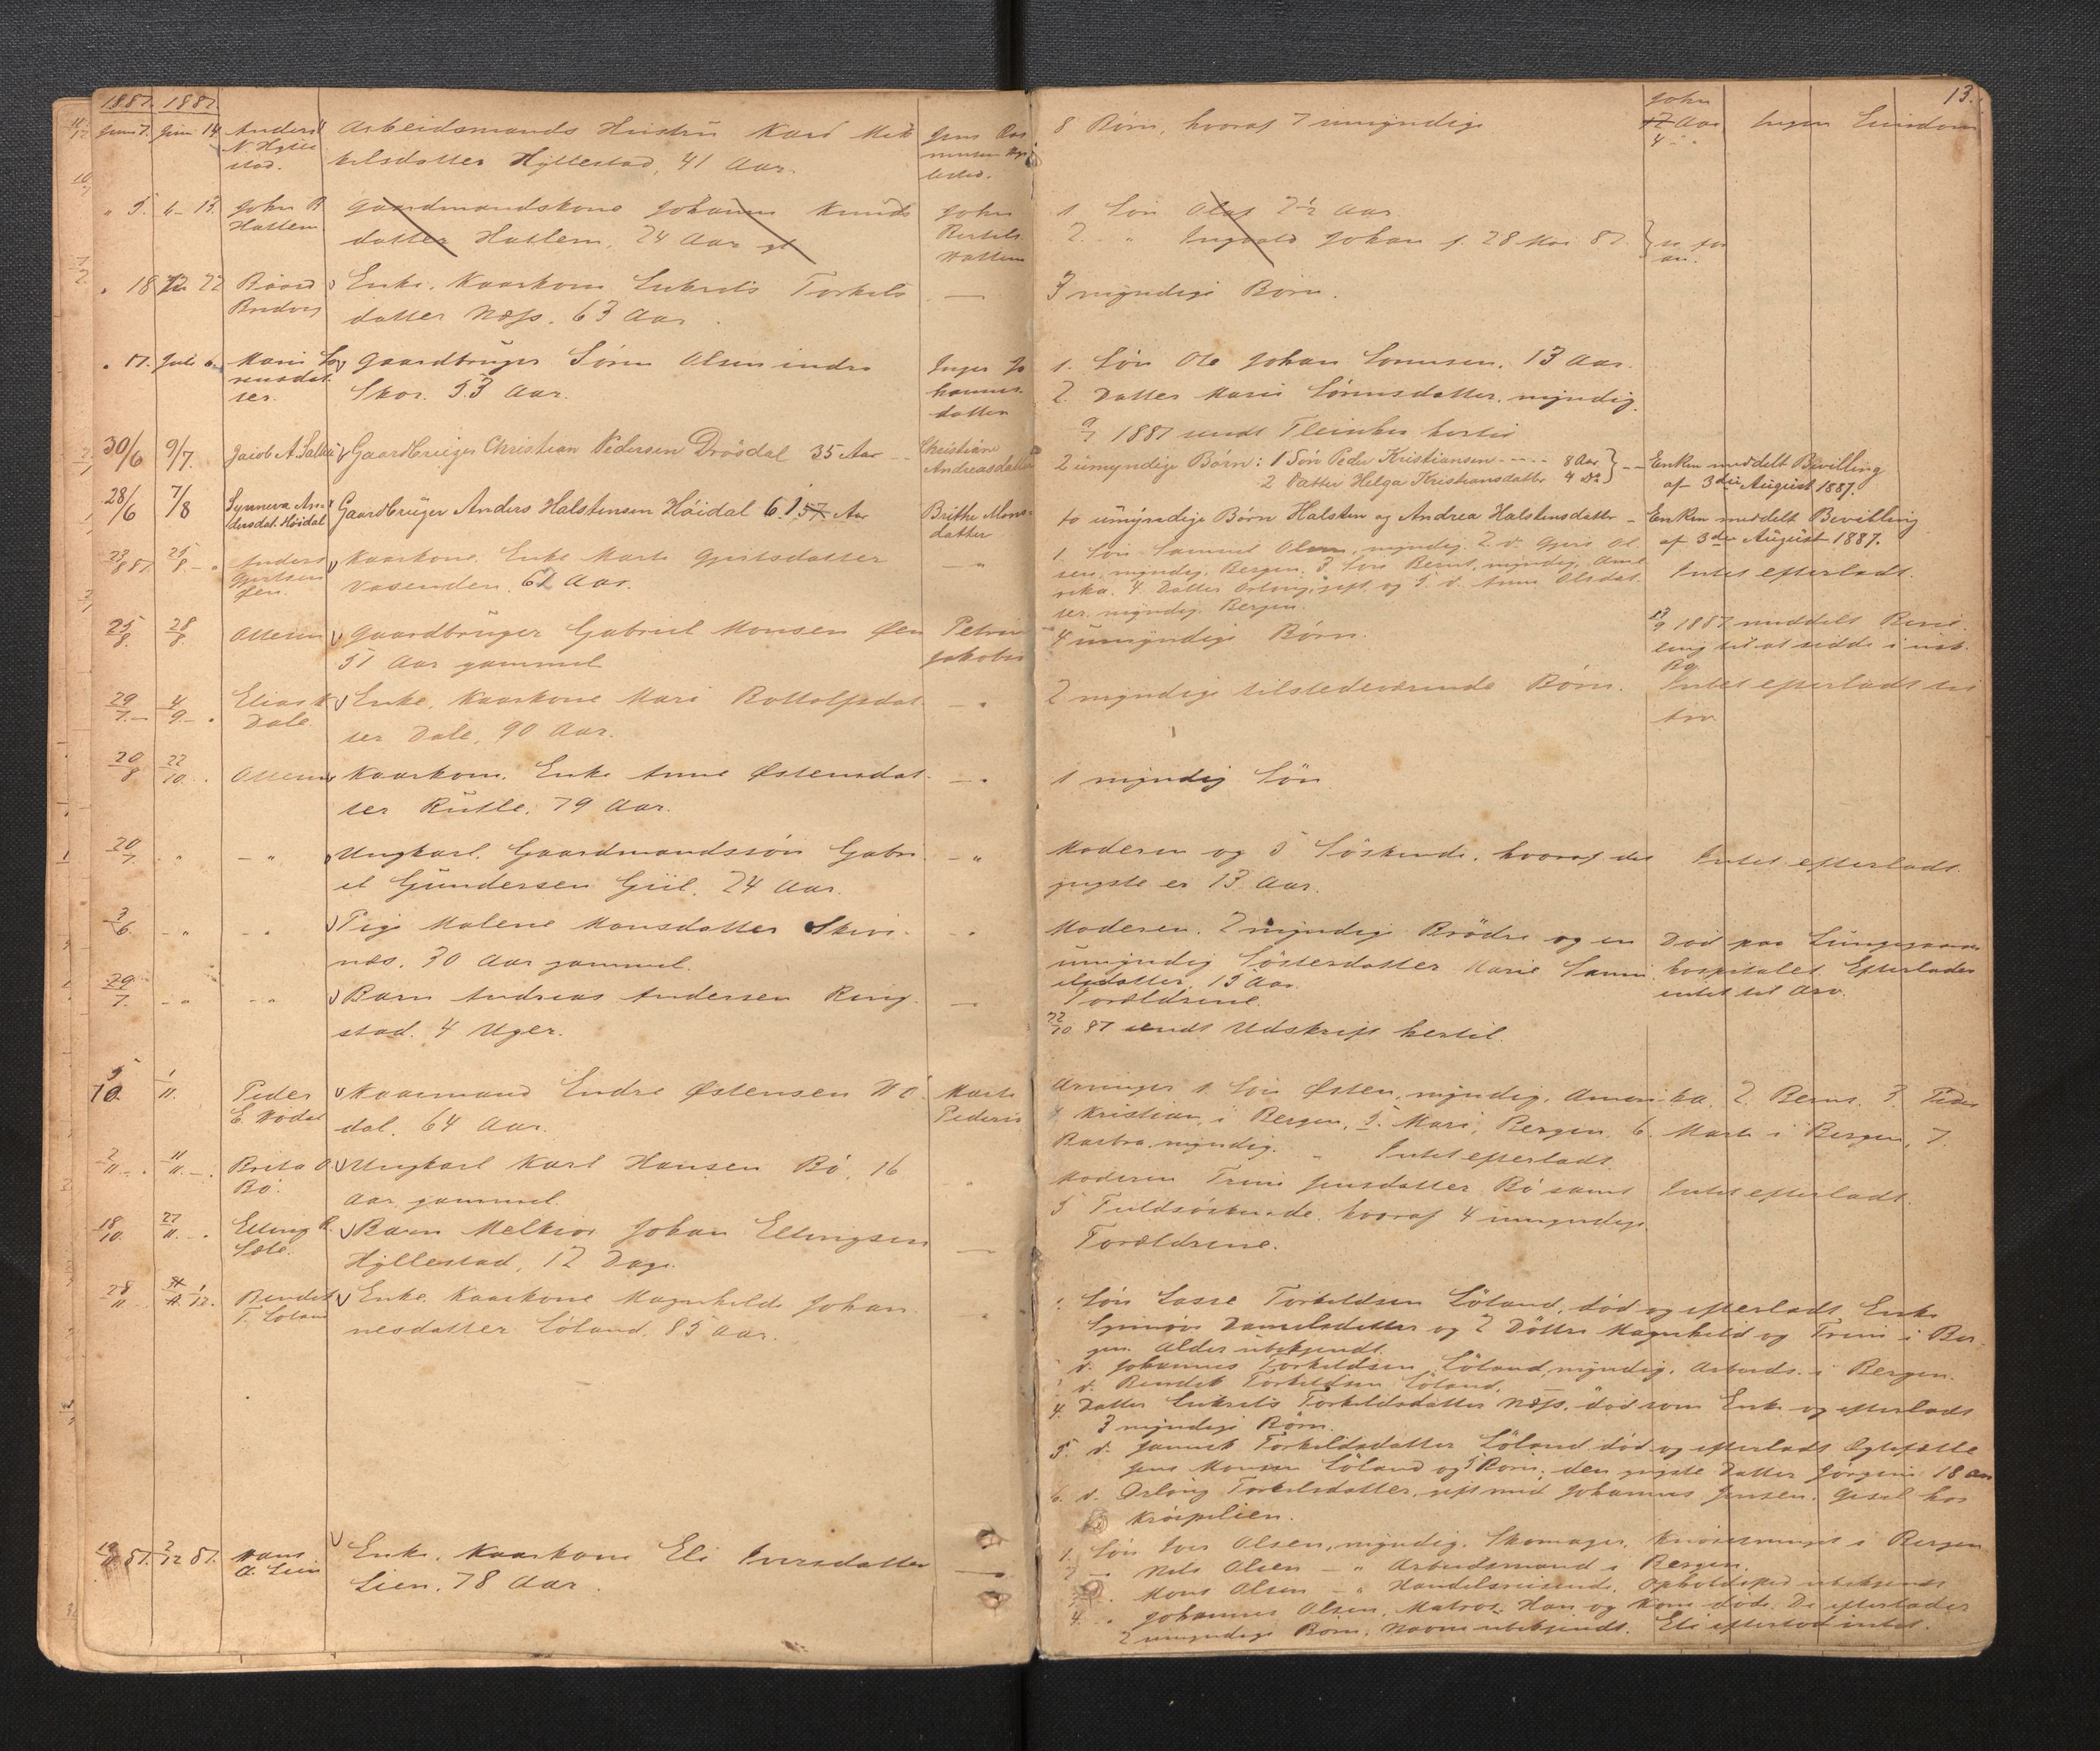 1887. 1887.
13.
Juni 7. Juni 14. Anders
N. Hylle
stad.
Arbeidsmands Hustru Kari Mik
kelsdatter Hyllestad, 41 Aar.
Jens Ras
mussen Hyl
lestad.
8 Børn, hvoraf 7 umyndige
John
12 Aar
4 - "
Ingen Eiendom
" 5. 13. John B
Hatlem
Gaardmandskone Johanne Knuds
datter Hatlem, 24 Aar gl
John
Bertels
Hatlem
1 Søn Olaf 2½ Aar
2. " Ingvald Johan f. 28 Mai 87.
" 18 22 Baard
Enke, Kaarkone Lukrits Torkels
datter Næss. 63 Aar.
—
3 myndige Børn.
" 17. Juli 6. Marie Sø
rensdat
ter.
Gaardbruger Søren Olsen indre
Skor. 53 Aar.
Inger Jo
hannes
datter
1. Søn Ole Johan Sørensen. 13 Aar.
2. Datter Marie Sørensdatter, myndig.
9/7 1887 sendt hertil
30/6 9/7. Jacob A. Salbu
Gaardbruger Christian Pedersen Drösdal 35 Aar
Christiane
Andreasdatter
2 umyndige Børn: 1 Søn Peder Kristiansen ---- 8 Aar
2 Datter Helga Kristiansdatter 4 Do
Enken meddelt Bevilling
af 3die August 1887.
28/6 7/8 Synneva An-
dersdat. Höidal
Gaardbruger Anders Halstensen Höidal 61 57 Aar
Brithe Mons-
datter
to umyndige Børn Halsten og Andrea Halstensdatter
Enken meddelt Bevilling
af 3die August 1887.
23/8 87 25/8 - " Anders
Gjertsen
Øen.
Kaarkone. Enke Marte Gjertsdatter
Vasenden. 62 Aar.
- "
1. Søn Samuel Olsen, myndig. 2. d. Gjert Ol
sen, myndig, Bergen. 3. Søn Bernt, myndig, Ame
rika. 4. Datter Orlaug, gift og 5. d. Anna Olsdat
ter, myndig. Bergen.
Intet efterladt.
25/8. 28/8. Ottesen
Gaardbruger Gabriel Monsen Øen
51 Aar gammel
Petrine
Jakobs
4 umyndige Børn.
13/9 1887 meddelt Bevil
ling til at sidde i usk.
Bo.
29/7.- 4/9.- " Elias K
Dale
Enke, Kaarkone Mari Bottolfsdat
ter Dale, 90 Aar.
- "
2 myndige tilstedeværende Børn.
Intet efterladt til
Arv.
20/8 22/10. " Ottesen
Kaarkone. Enke Anne Østensdat-
ter Rutle. 79 Aar.
- "
1 myndig Søn
20/7. " - "
Ungkarl. Gaardmandssøn Gabri
el Gundersen Giil. 24 Aar.
- "
Moderen og 5 Söskende, hvoraf det
yngste er 13 Aar.
Intet efterladt.
3/6. - " - "
Pige Malene Monsdatter Skivi-
næs. 30 Aar gammel.
- "
Moderen. 2 myndige Brödre og en
umyndig Søsterdatter Marie Samu
elsdatter 15 Aar.
Død paa Lungegaards
hospitalet. Efterlader
intet til Arv.
29/7. - " - "
Barn Andreas Andersen Ring-
stad. 4 Uger.
—
Forældrene.
22/10 87 sendt Udskrift hertil.
5/10. 1/11. Peder
E. Hødal
Kaarmand Endre Østensen Hö
dal. 64 Aar.
Marte
Peders
Arvinger 1. Søn Østen, myndig, Amerika. 2. Bernt. 3. Peder
4. Kristian, i Bergen, 5. Mari, Bergen. 6. Marte i Bergen, 7.
Barbra myndig. - Intet efterladt.
2/11 - . 11/11 - . Brita O
Bö.
Ungkarl Karl Hansen Bö. 16
Aar gammel.
Moderen Trine Jensdatter Bö samt
5 Fuldsöskende, hvoraf 4 umyndige
Intet efterladt.
18/10. 27/11. . Elling
Sæle.
Barn Melkior Johan Ellingsen
Hyllestad, 12 Dage.
—
Forældrene.
28/11 1/12. Bendik
T. Løland
Enke. Kaarkone Magnhilde Johan
nesdatter Löland. 85 Aar.
1. Søn Lasse Torkildsen Löland, død og efterladt Enke
Synnöve Danielsdatter og 2 Döttre Magnhild og Trine i Ber
gen. Alder ubekjendt.
d. Johannes Torkildsen Löland, myndig. Arbeids. i Bergen.
d. Bendik Torkildsen Löland.
4. Datter Lukrets Torkildsdatter Næss. død som Enke og efterladt
3 myndige Børn.
5. d. Jannik Torkildsdatter Löland död og efterladt Ægtefælle
Jens Monsen Löland og 5 Börn, den yngste Datter Jörgine 18 Aar
6. d. Orlaug Torkelsdatter gift med Johannes Jensen.
19/11 87. 2/12 87. Hans
A. Lien
Enke. Kaarkone Eli Iversdatter
Lien. 78 Aar.
—
1. Søn Iver Olsen, myndig. Skomager, i Bergen
2 - Nils Olsen - " Arbeidsmand i Bergen.
Mons Olsen - " Handelsreisende, Opholdssted ubekjendt
4. " Johannes Olsen, Matros. Han og Kone døde. De efterlader
2 umyndige Børn. Navne ubekjendt. Eli efterlod intet.